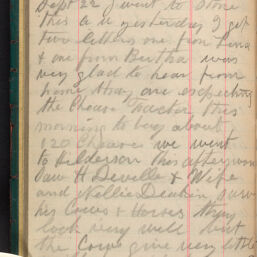 Sept 22 I went to Stone
this a m yesterday I got
two letters one from Lena
& one from Bertha was
very glad to hear from
home they are expecting
the Cheese Factor this
morning to buy about
120 Cheese we went
to Helderson this afternoon
saw H Deville & Wife
and Nellie Deakin saw
his Cows & Horses they
look very well but
the Cows give very little